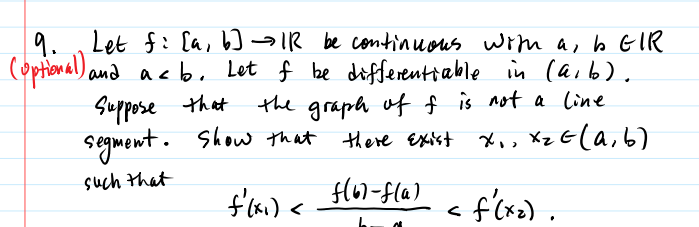 9. Let f: [a, b] → IR be continuous with a, b ∈ IR
(optional) and a < b. Let f be differentiable in (a, b).
Suppose that the graph of f is not a line
segment. Show that there exist x₁, x₂ ∈ (a, b)
such that
f'(x₁) < f(b) - f(a) / b - a < f'(x₂).